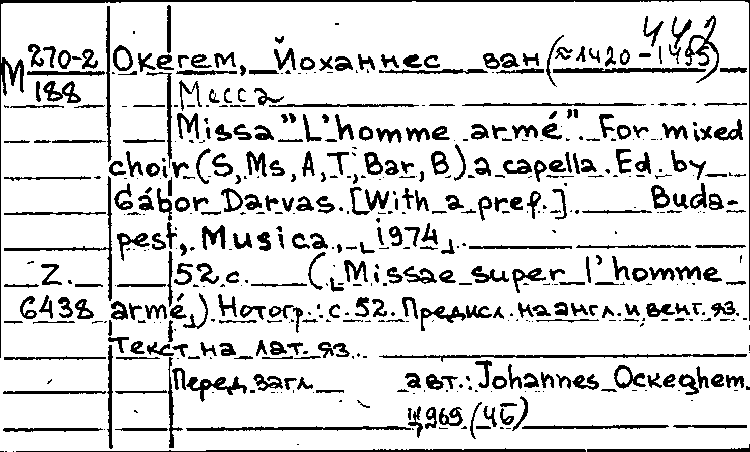 442
М 270-2 Окегем, Йоханнес ван (≈1420-1495)
188 Месса
Missa "L'homme armé". For mixed
choir (S, Ms, A, T, Bar, B) a capella. Ed. by
Gábor Darvas. [With a pref.] Buda-
pest, Musica, [1974].
Z. 52 с. ([Missae super l'homme
6438 armé]) Нотогр.: с. 52. Предисл. на англ. и венг. яз.
Текст на лат. яз.
Перед загл. авт.: Johannes Ockeghem.
969 (4Б)